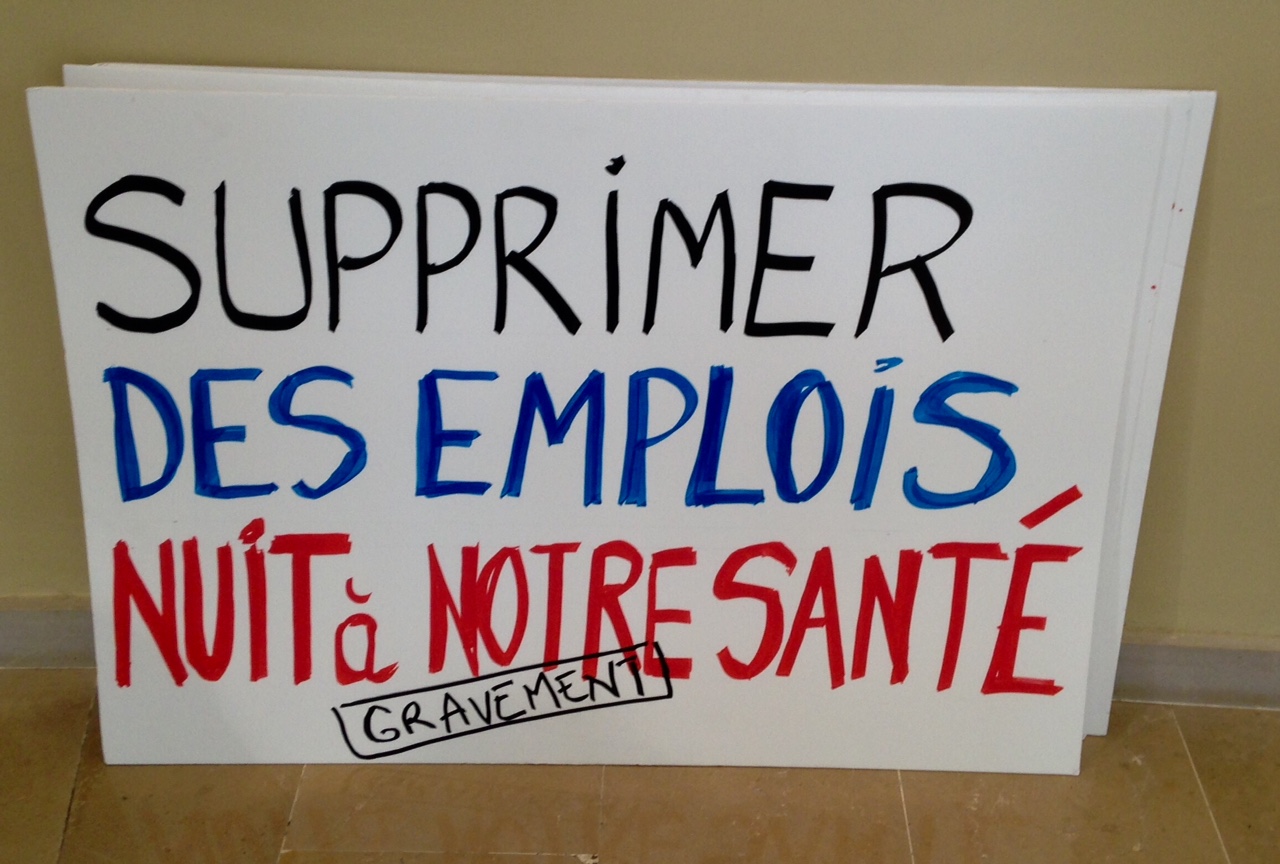 SUPPRiMER
DES EMPLOiS
NUiT à NOTRE SANTÉ
GRAVEMENT